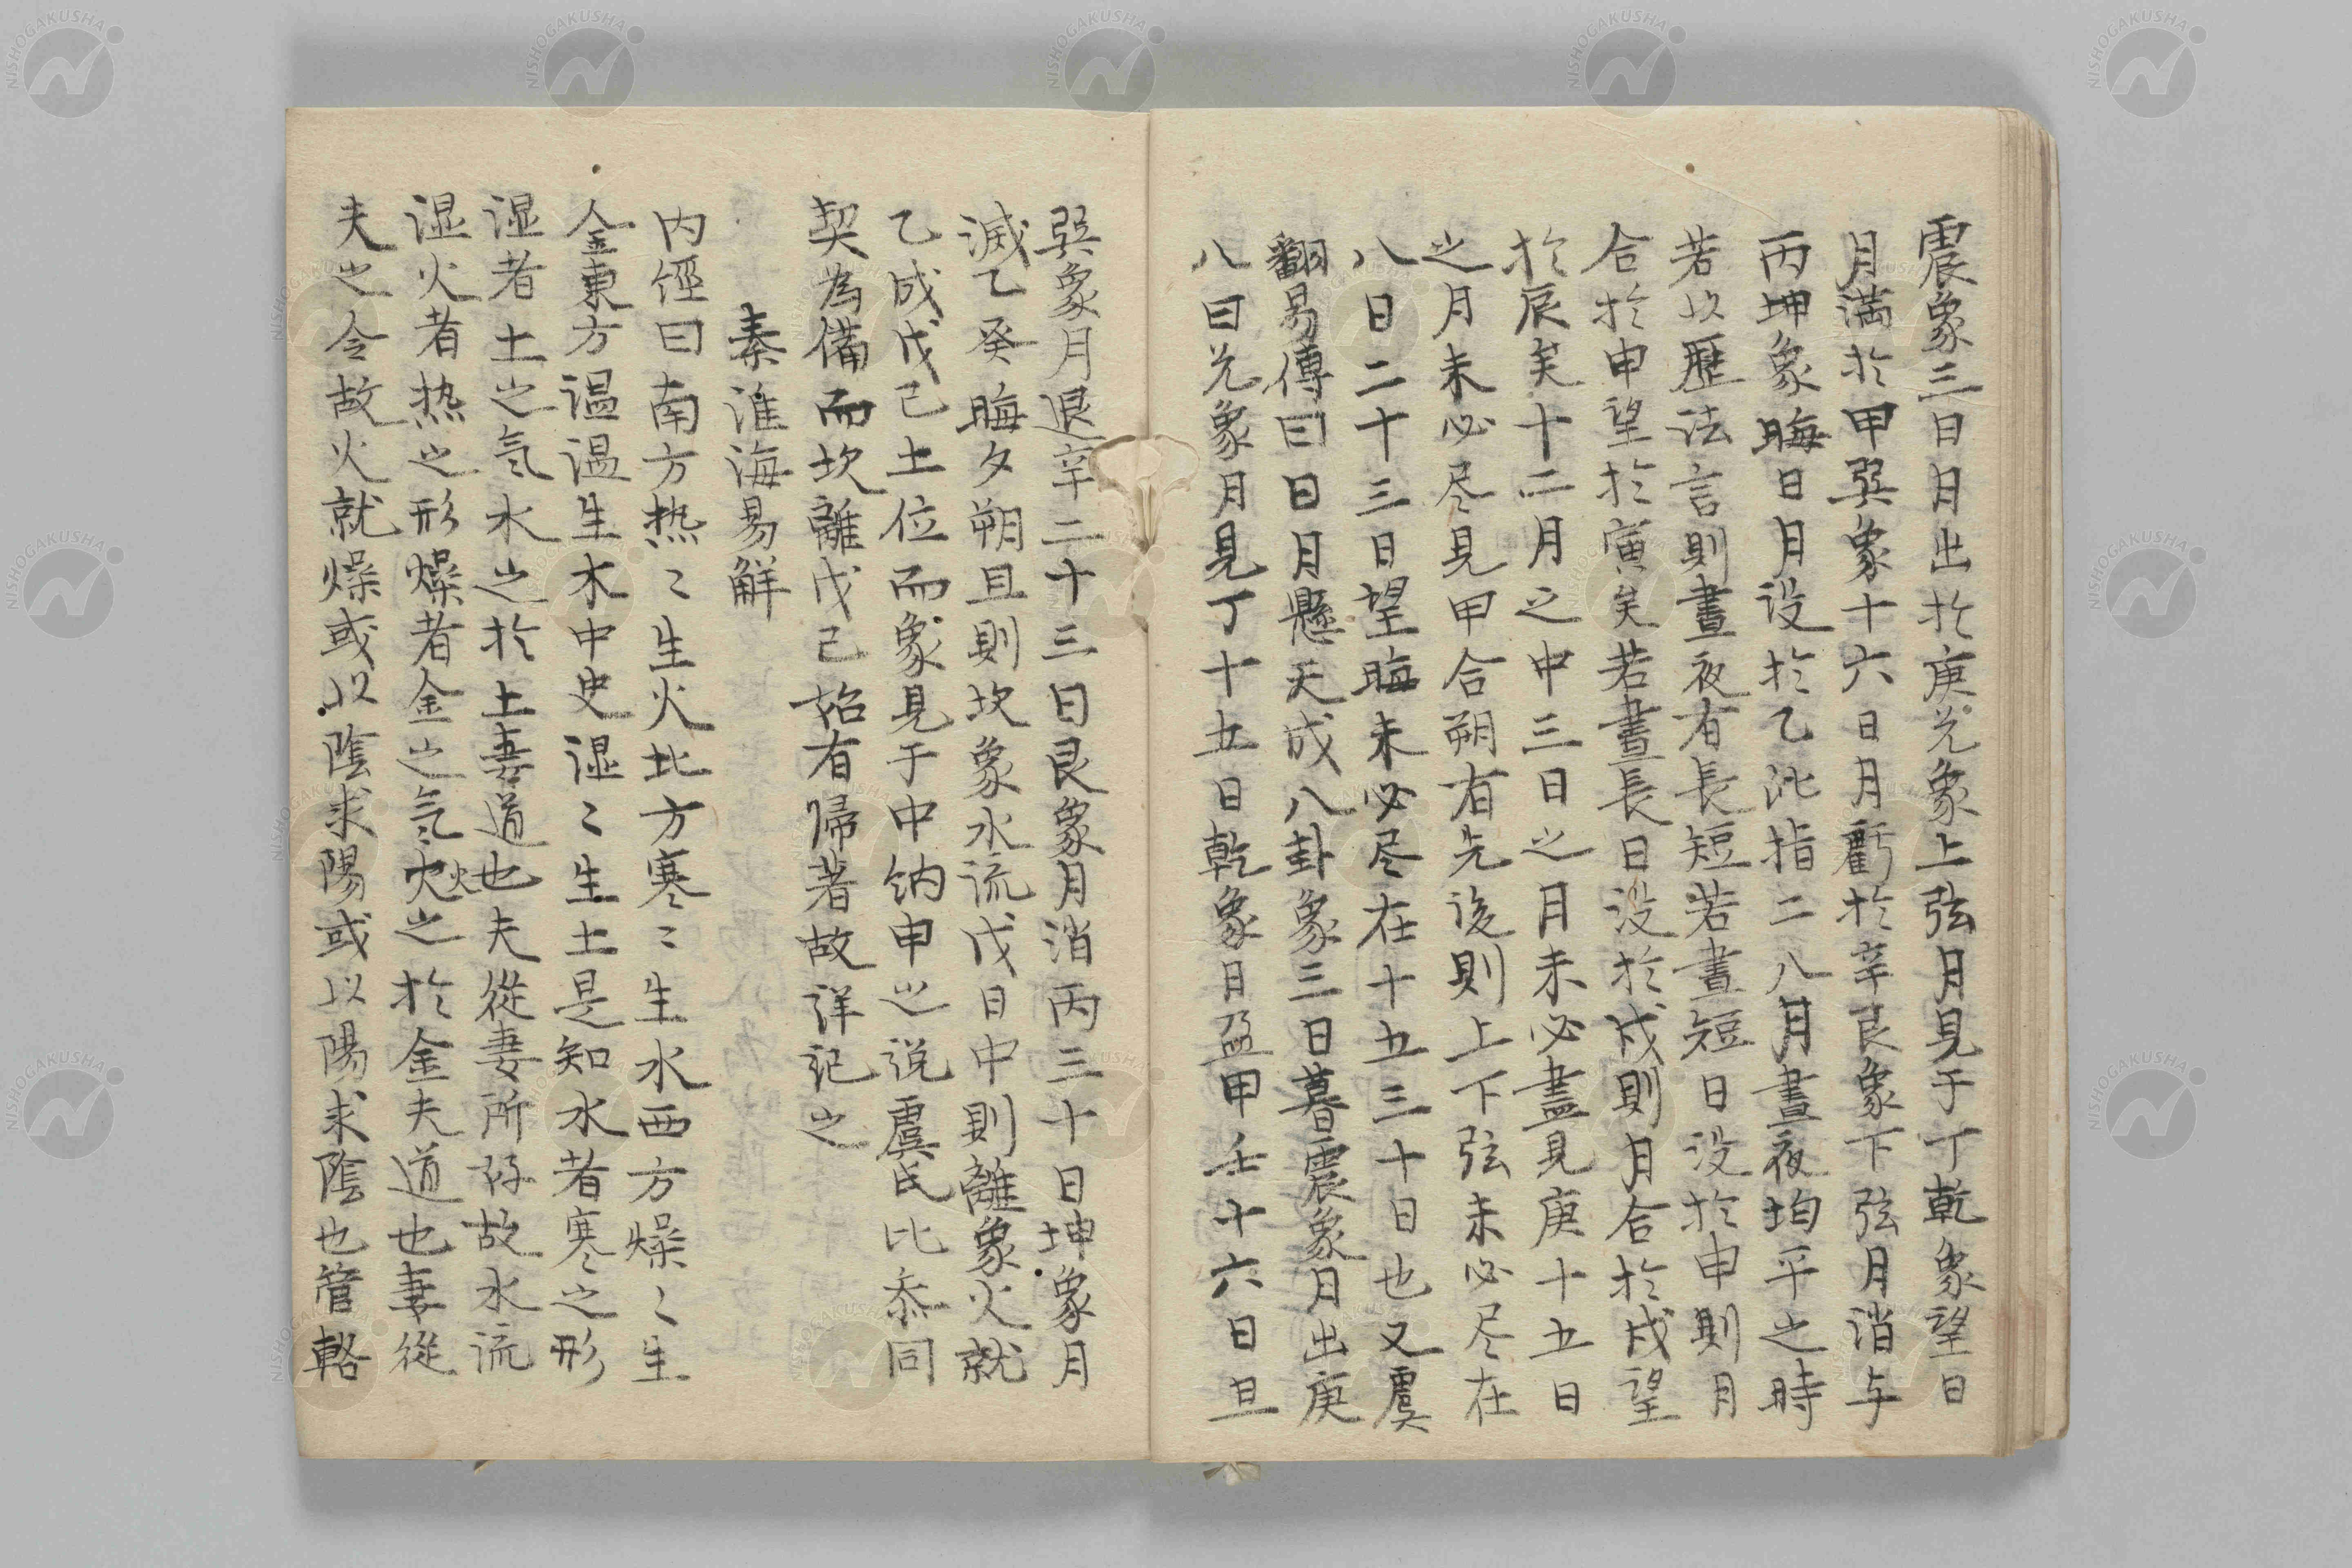 震象三日月出於庚兌象上弦月見于丁乾象望日
月満於甲巽象十六日月虧於辛艮象下弦月消与
丙坤象晦日月没於乙此指二八月晝夜均平之時
若以歷法言則晝夜有長短若晝短日没於申則月
合於申望於寅矣若晝長日没於戌則月合於戌望
於辰矣十二月之中三日之月未必盡見庚十五日
之月未必尽見甲合朔有先後則上下弦未必尽在
八日二十三日望晦未必尽在十五三十日也又虞
翻易傳曰日月懸天成八卦象三日暮震象月出庚
八日兌象月見丁十五日乾象日盈甲壬十六日旦
巽象月退辛二十三日艮象月消丙三十日坤象月
滅乙癸晦夕朔旦則坎象水流戊日中則離象火就
乙成戊己土位而象見于中納申之説虞氏比叅同
契為備而坎離戊己始有帰著故詳記之
秦淮海易觧
内徑曰南方热〻生火北方寒〻生水西方燥〻生
金東方温温生木中史湿〻生土是知水者寒之形
湿者土之氣水之於土妻道也夫從妻所好故水流
湿火者热之形燥者金之氣火火之於金夫道也妻從
夫之令故火就燥或以陰求陽或以陽求陰也管輅
NISHOGAKUSHA